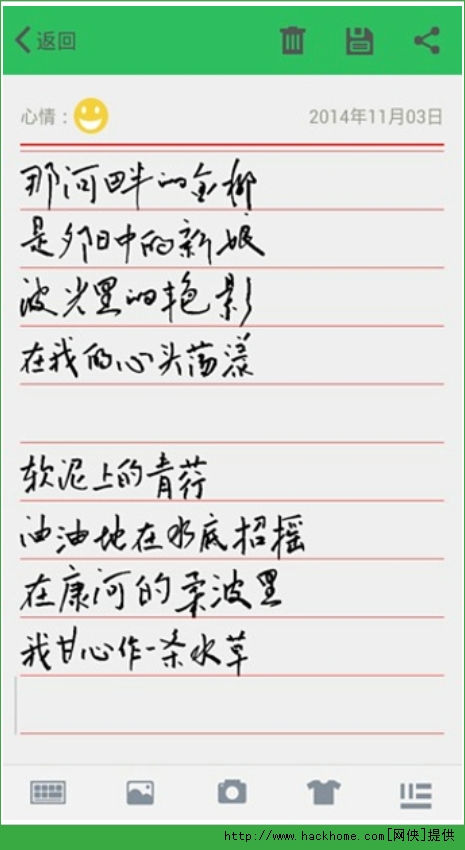 返回
心情：
2014年11月03日
那河畔的金柳
是夕阳中的新娘
波光里的艳影
在我的心头荡漾
软泥上的青荇
油油地在水底招摇
在康河的柔波里
我甘心作一条水草
http://www.hackhome.com[网侠]提供